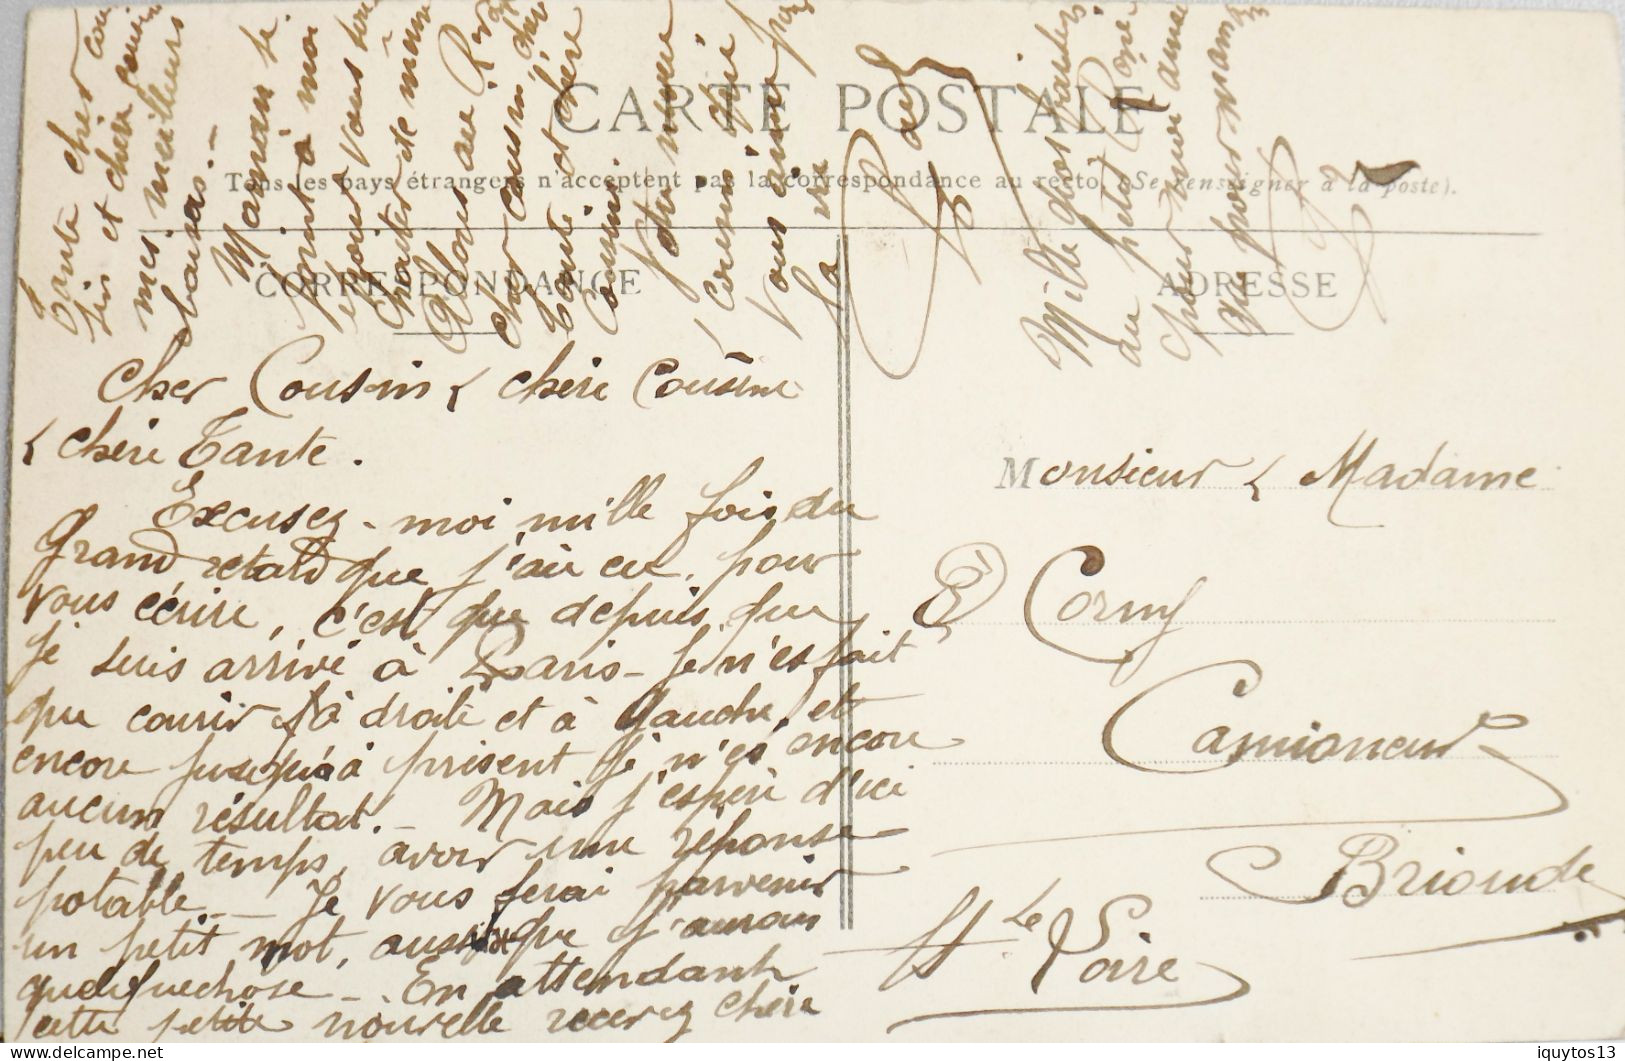 CARTE POSTALE
Tous les pays étrangers n'acceptent pas la correspondance au recto. (Se renseigner à la poste).
CORRESPONDANCE
ADRESSE
Cher Cousin & chère Cousine
& chère Tante.
Excusez-moi mille fois du
grand retard que j'ai eu, pour
vous écrire, c'est que depuis que
je suis arrivé à Paris - je n'es fait
que courir à droite et à gauche, et
encore jusqu'à présent je n'es encore
aucun résultat. - Mais j'espère d'ici
peu de temps, avoir une réponse
potable - Je vous ferai parvenir
un petit mot, aussitôt que j'aurais
quelquechose - En attendant
cette petite nouvelle recevez chère
Tante cher cou
sin et chère cousine
mes meilleurs
baisers. -
Maman se
joint à moi
pour vous
de même
Allons au R
cher cousin chère
tante et chère
Cousine
Votre neveu
cousin qui
vous aime pour
la vie
Paul
Mille gros baisers
au petit
pour moi ainsi
que pour maman
Monsieur & Madame
Corny
Camionneur
Brioude
Hte Loire
iquytos13